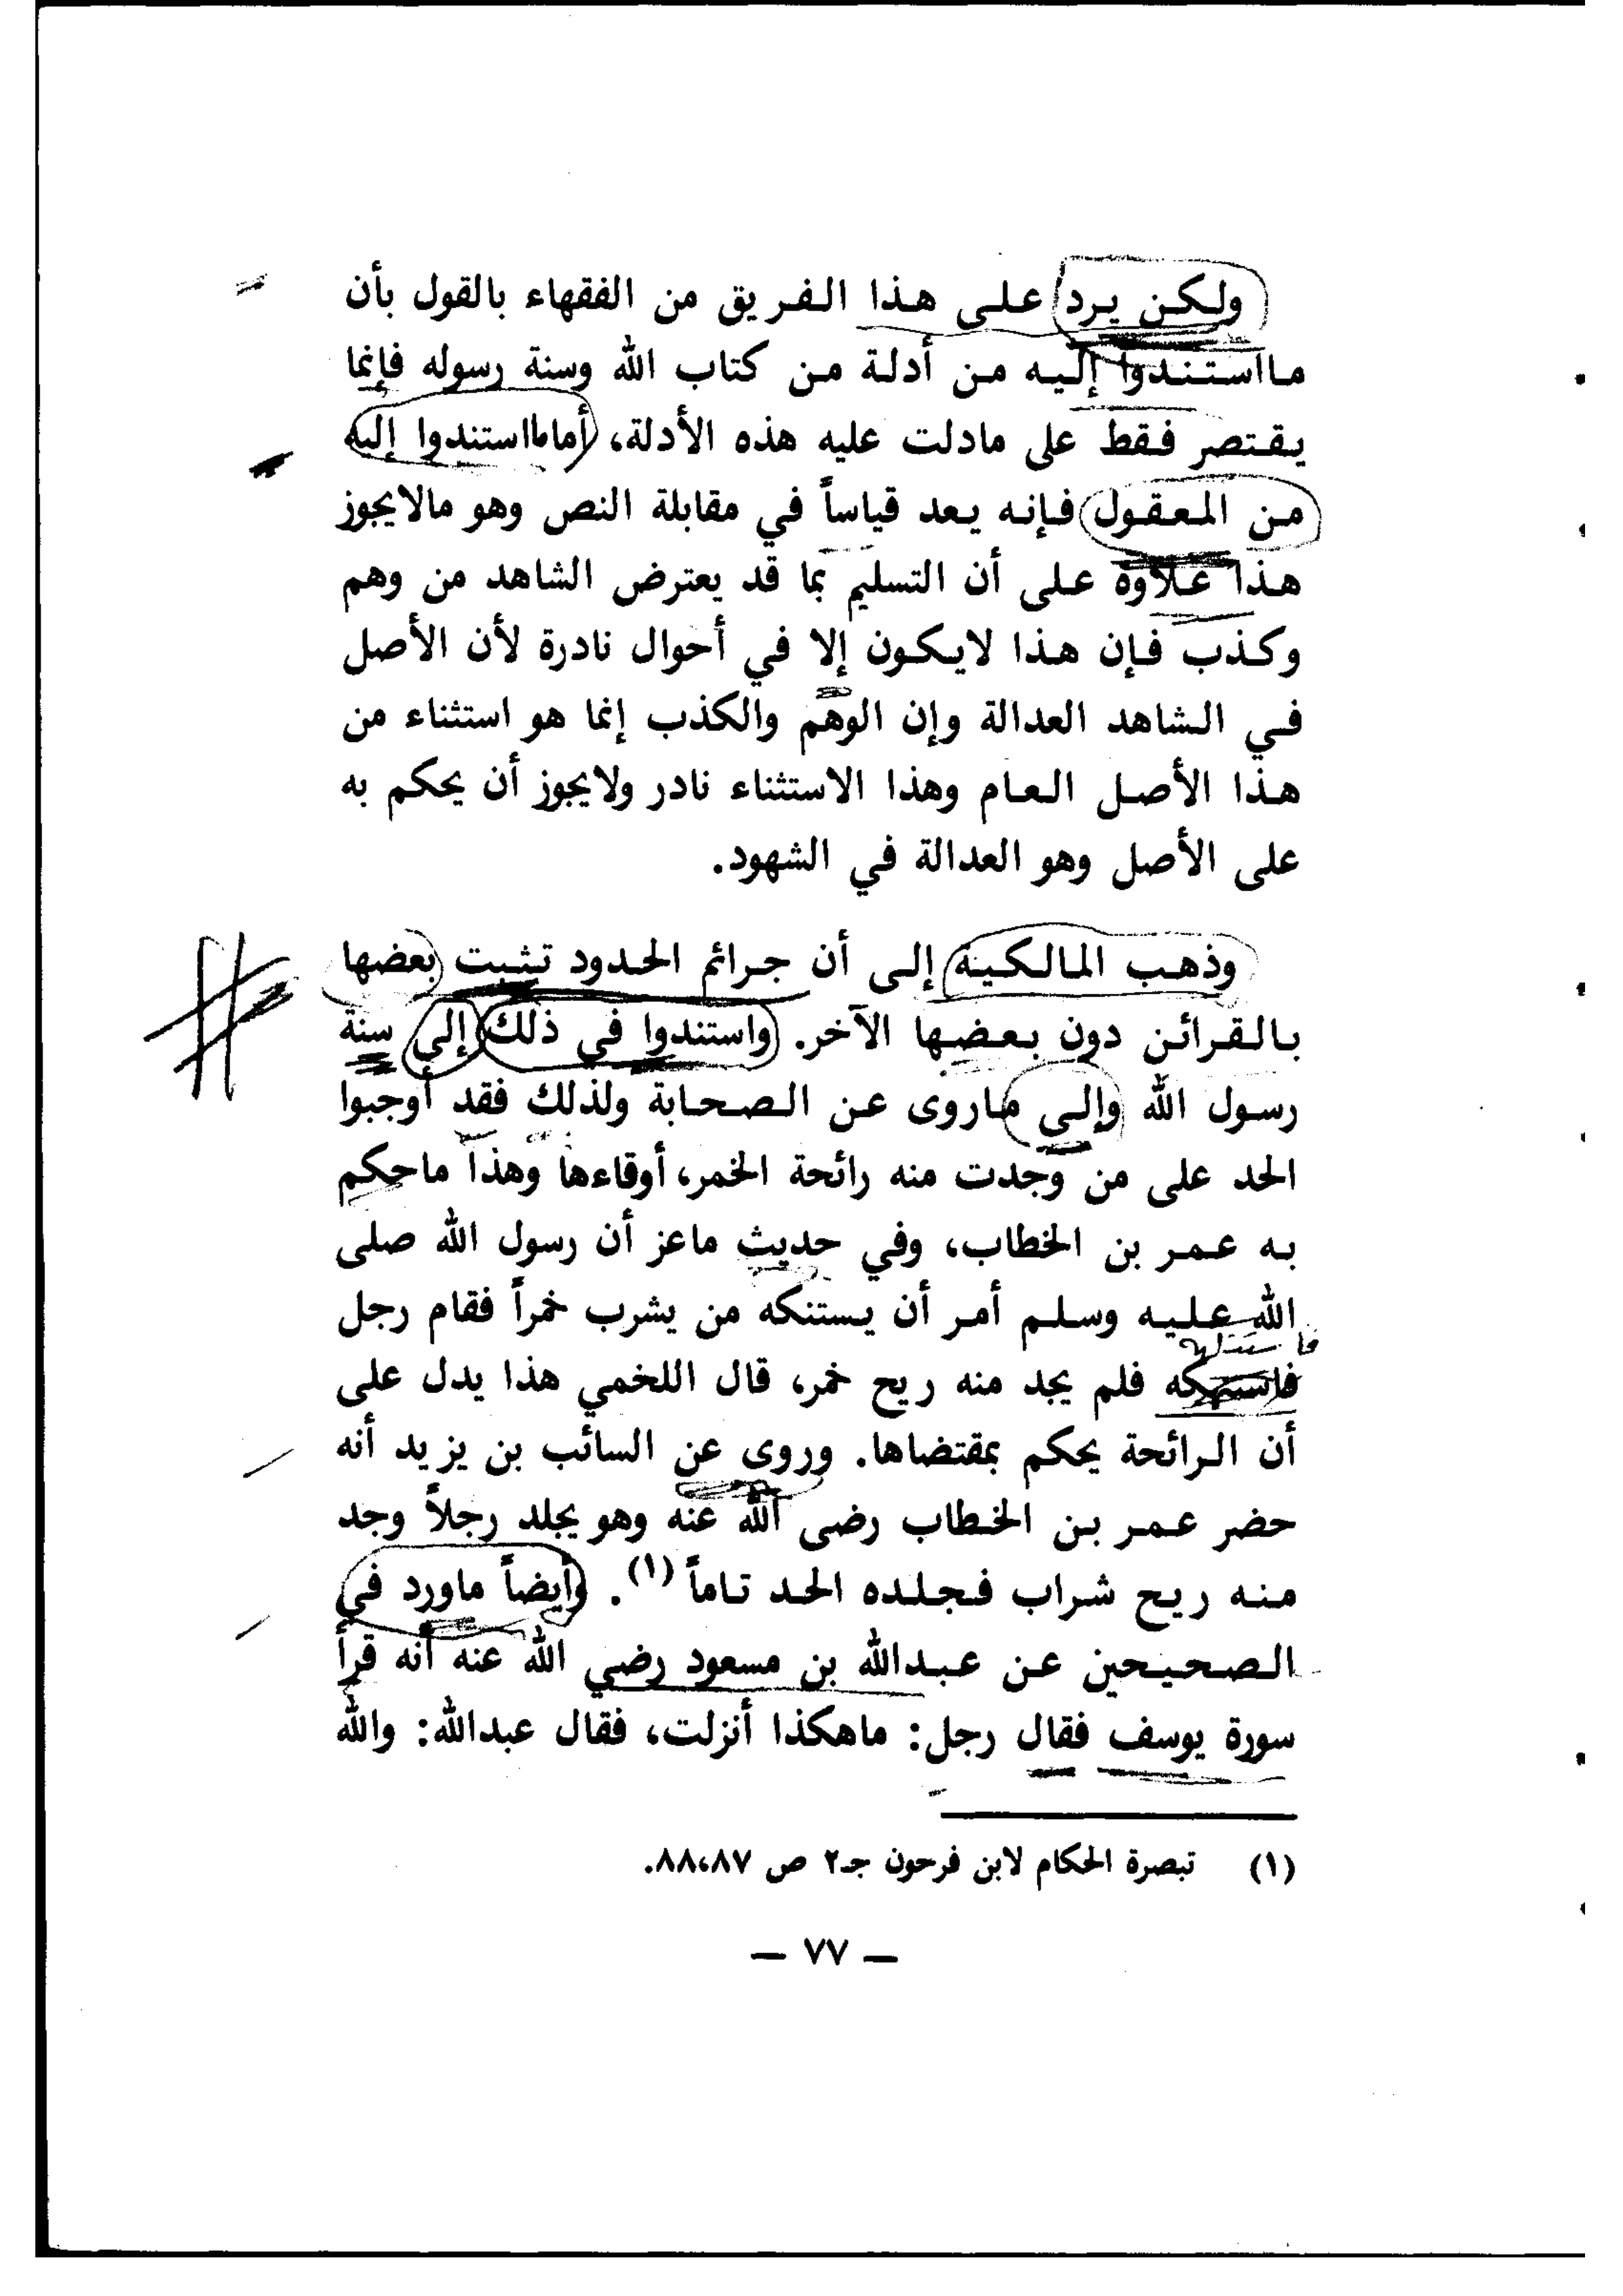 ولكن يرد على هذا الفريق من الفقهاء بالقول بأن
مااستندوا إليه من أدلة من كتاب الله وسنة رسوله فإنما
يقتصر فقط على مادلت عليه هذه الأدلة، أمامااستندوا إليه
من المعقول فإنه يعد قياساً في مقابلة النص وهو مالايجوز
هذا علاوة على أن التسليم بما قد يعترض الشاهد من وهم
وكذب فإن هذا لايكون إلا في أحوال نادرة لأن الأصل
في الشاهد العدالة وإن الوهم والكذب إنما هو استثناء من
هذا الأصل العام وهذا الاستثناء نادر ولايجوز أن يحكم به
على الأصل وهو العدالة في الشهود.
وذهب المالكية إلى أن جرائم الحدود تثبت بعضها
بالقرائن دون بعضها الآخر. واستندوا في ذلك إلى سنة
رسول الله وإلى ماروى عن الصحابة ولذلك فقد أوجبوا
الحد على من وجدت منه رائحة الخمر، أوقاءها وهذا ماحكم
به عمر بن الخطاب، وفي حديث ماعز أن رسول الله صلى
الله عليه وسلم أمر أن يستنكه من يشرب خمراً فقام رجل
فلم يجد منه ريح خمر، قال اللخمي هذا يدل على
أن الرائحة يحكم بمقتضاها. وروى عن السائب بن يزيد أنه
حضر عمر بن الخطاب رضى الله عنه وهو يجلد رجلاً وجد
منه ريح شراب فجلده الحد تاماً (١). وأيضاً ماورد في
الصحيحين عن عبدالله بن مسعود رضي الله عنه أنه قرأ
سورة يوسف فقال رجل: ماهكذا أنزلت، فقال عبدالله: والله
(١) تبصرة الحكام لابن فرحون جـ٢ ص ٨٨،٨٧.
— ٧٧ —